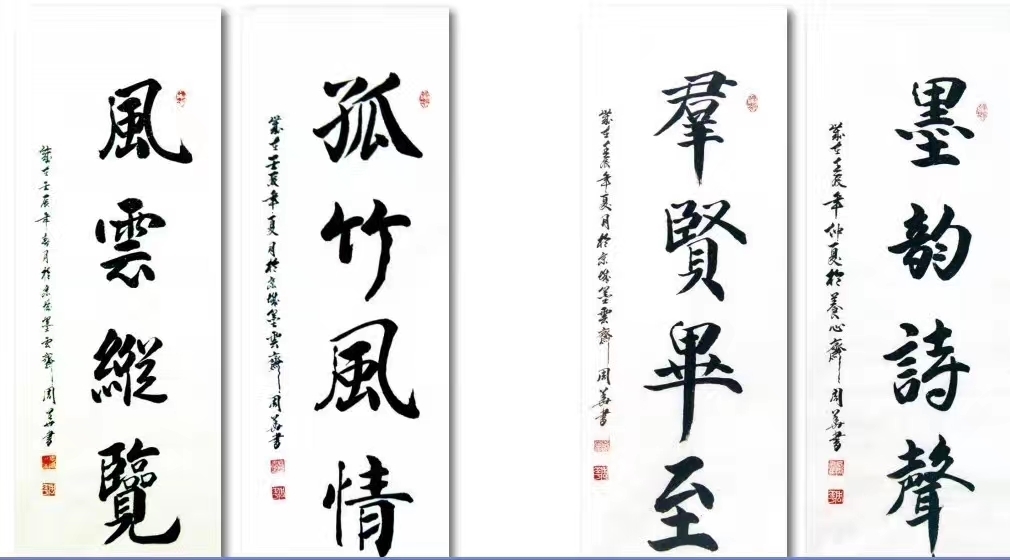 墨韵詩聲
歲在壬辰年仲夏於養心齋 周 書
羣賢畢至
歲在壬辰年夏月於京城墨雲齋 周 書
孤竹風情
歲在壬辰年夏月於京城墨雲齋 周 書
風雲縱覽
歲在壬辰年春月於京城墨雲齋 周 書